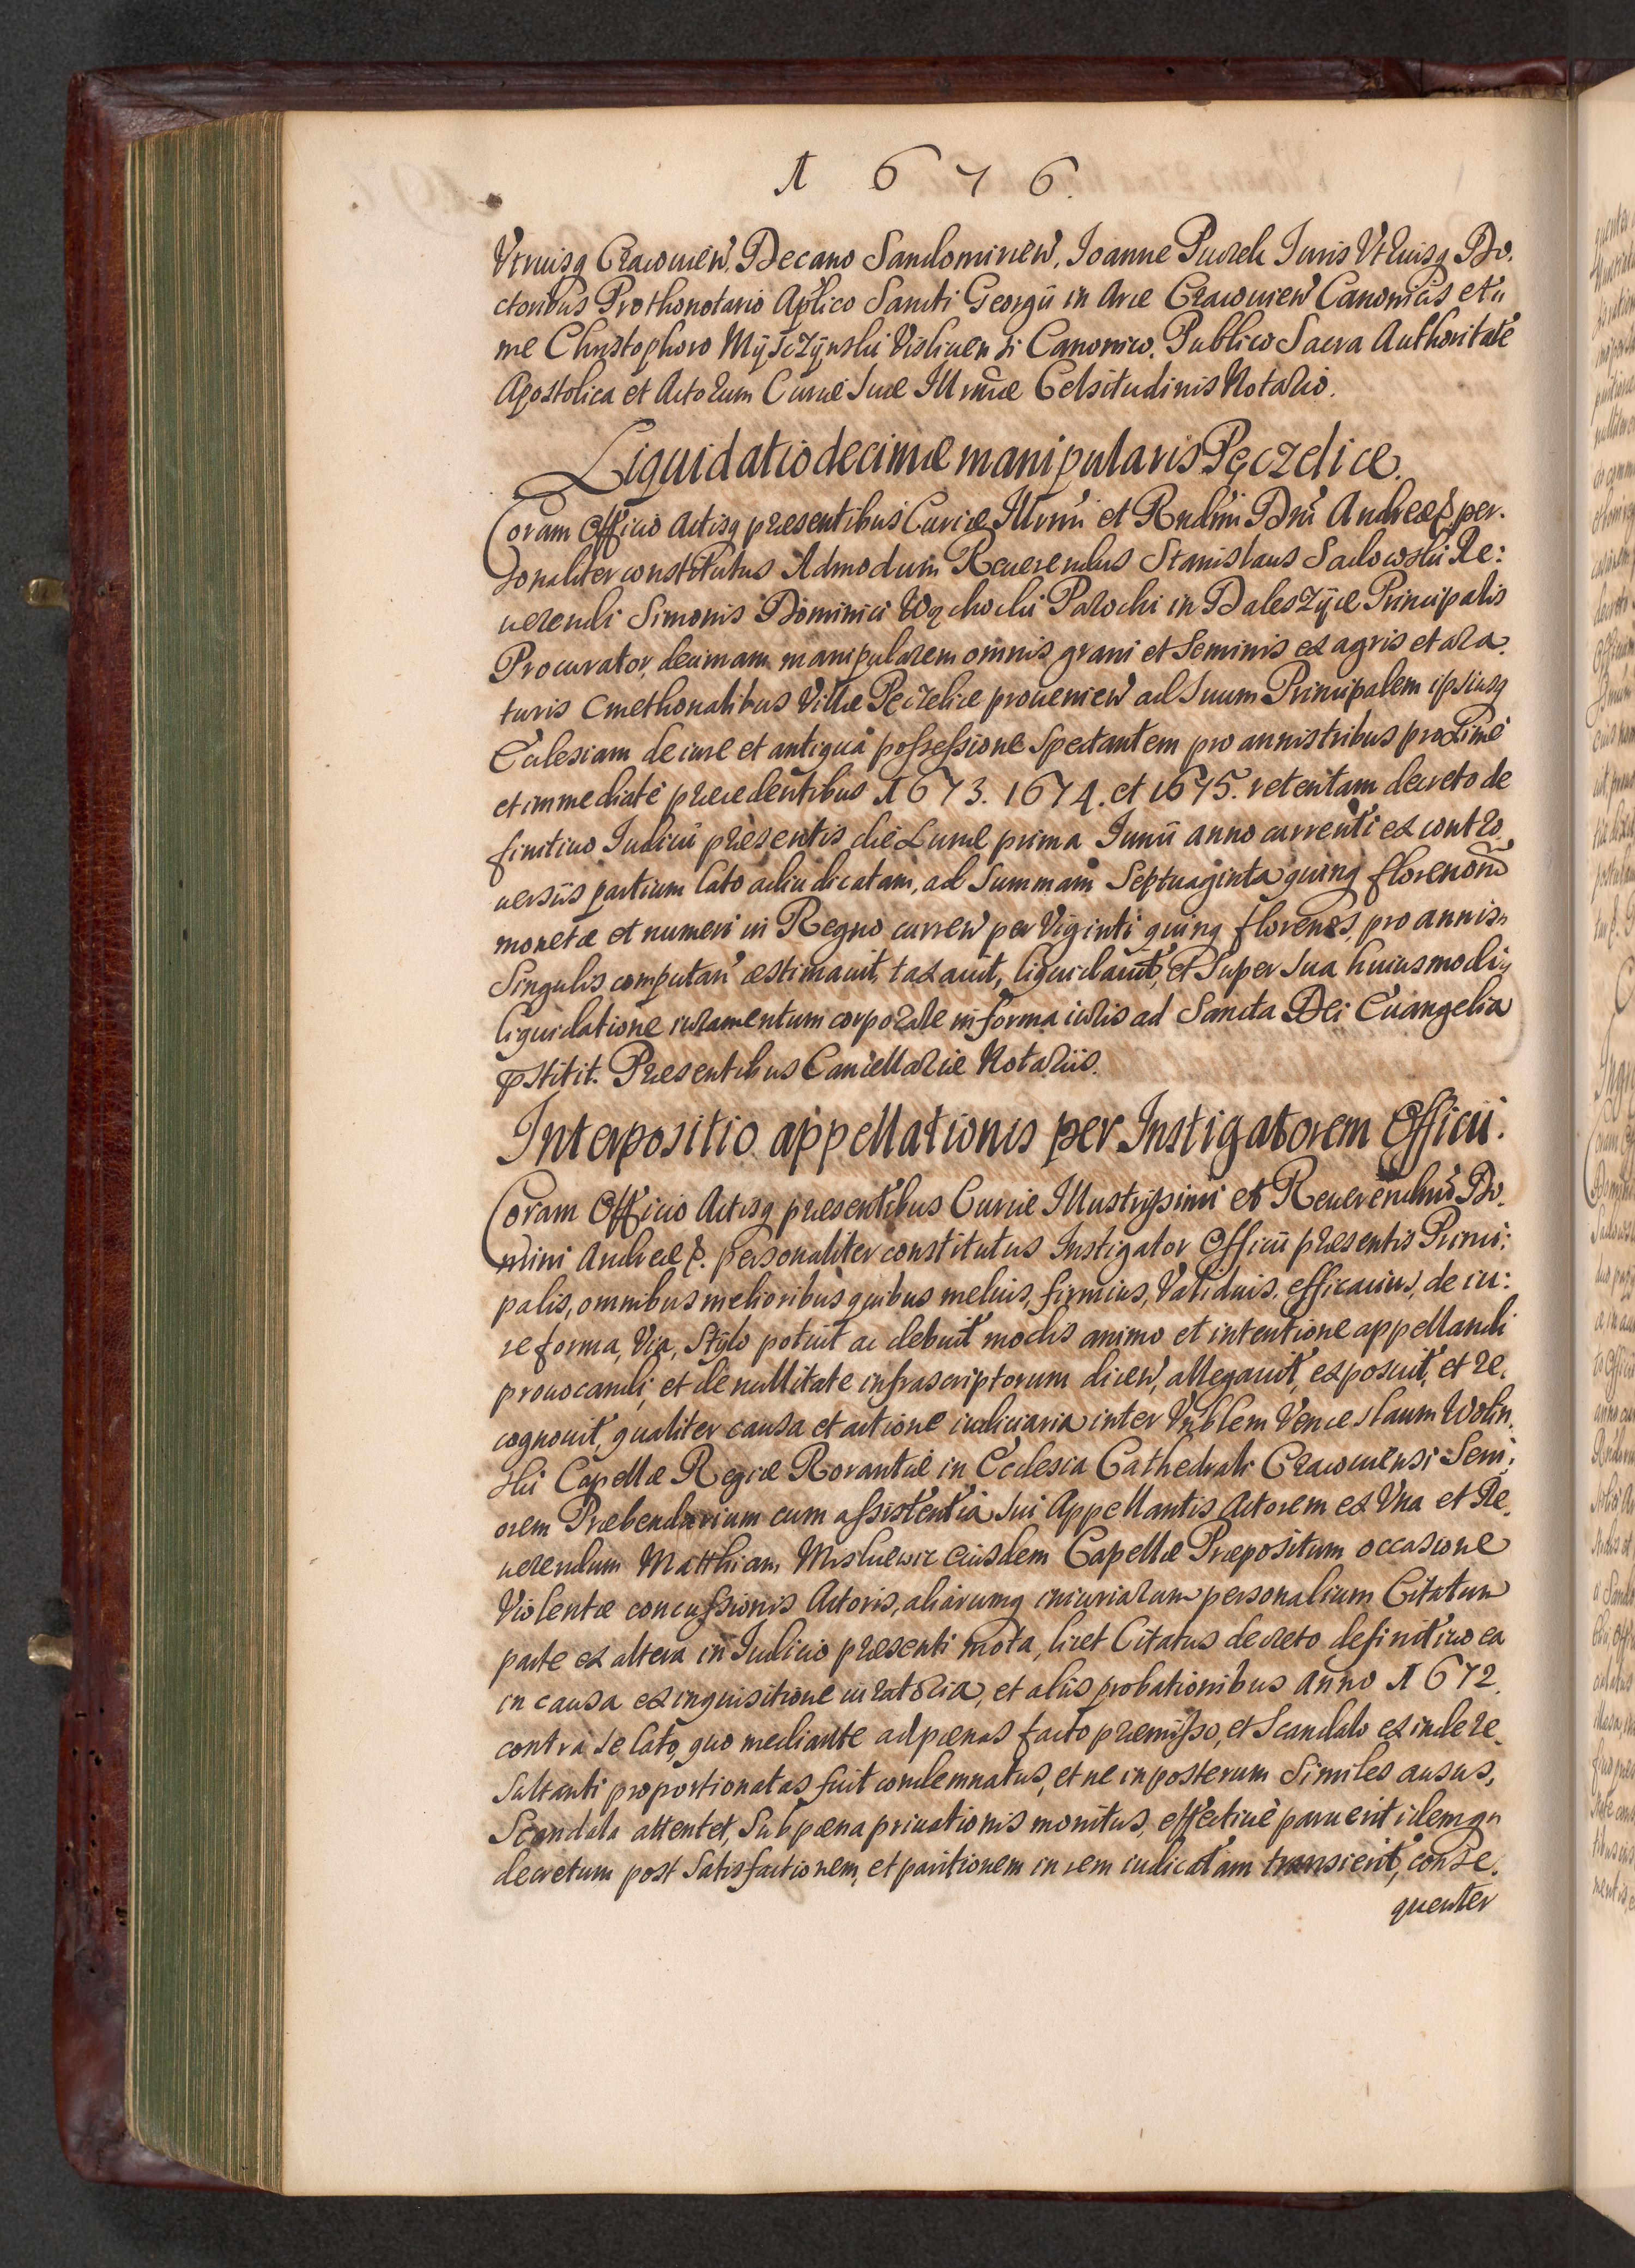 1676.
Vtriusq Cracouien. Decano Sandomirien, Joanne Puczek Juris Vtriusq Do-
ctoribus Prothonotario Aplico Sancti Georgii in Arce Cracouien Canonicis et
me Christophoro Mÿsczÿnski Visliciensi Canonico. Publico Sacra Authoritate
Apostolica et Actorum Curiæ Suæ Illrmæ Celsitudinis Notario.
Liquidatio decimæ manipularis Pęczelice.
Coram Officio Actisq præsentibus Curiæ Illrmi et Rndmi Dni Andreæ &. per-
sonaliter constitutus Admodum Reuerendus Stanislaus Sadowski Re:
uerendi Simonis Dominici Wąchocki Parochi in Daleszÿce Principalis
Procurator, decimam manipularem omnis grani et seminis ex agris et ara-
turis Cmethonalibus Villæ Peczelice prouenien ad Suum Principalem ipsiusq
Ecclesiam de iure et antiqua possessione Spectantem pro annis tribus proxime
et immediate præcedentibus 1673. 1674. et 1675. retentam decreto de
finitiuo Iudicii præsentis die Lunæ prima Junii anno currenti ex contro
uersiis partium lato adiudicatam, ad Summam Septuaginta quinq florenorum
monetæ et numeri in Regno curren per Viginti quinq florenos, pro annis
Singulis computan æstimauit, taxauit, liquidauit, et Super Sua huiusmodi
liquidatione iuramentum corporale in forma iuris ad Sancta Dei Euangelia
pstitit. Præsentibus Cancellariæ Notariis.
Interpositio appellationis per Instigatorem Officii.
Coram Officio Actisq præsentibus Curiæ Illustrissimi et Reuerendmi Do-
mini Andreæ &. personaliter constitutus Instigator Officii præsentis Princi:
palis, omnibus melioribus quibus melius, firmius, Validius, efficacius, de iu:
re forma, Via, Stÿlo potuit ac debuit modis animo et intentione appellandi
prouocandi, et de nullitate infrascriptorum dicen, allegauit, exposuit, et re-
cognouit, qualiter causa et actione iudiciaria inter Vnblem Venceslaum Wolin-
ski Capellæ Regiæ Rorantiæ in Ecclesia Cathedrali Cracouiensi Seni:
orem Præbendarium cum assistentia sui Appellantis Actorem ex Vna et Re-
uerendum Matthiam Miskiewic eiusdem Capellæ Præpositum occasione
Violentæ concussionis Actoris, aliarumq iniuriarum personalium Citatum
parte ex altera in Iudicio præsenti mota, licet Citatus decreto definitiuo ea
in causa ex inquisitione iuratoria, et aliis probationibus Anno 1672.
contra se lato, quo mediante ad pænas facto præmisso, et Scandalo exinde re-
sultanti proportionatas fuit condemnatus, et ne inposterum Similes ausus,
Scandala attentet, Sub pæna priuationis monitus, effectiue paruerit idemq
decretum post Satisfactionem, et paritionem in rem iudicatam transierit, conse-
quenter